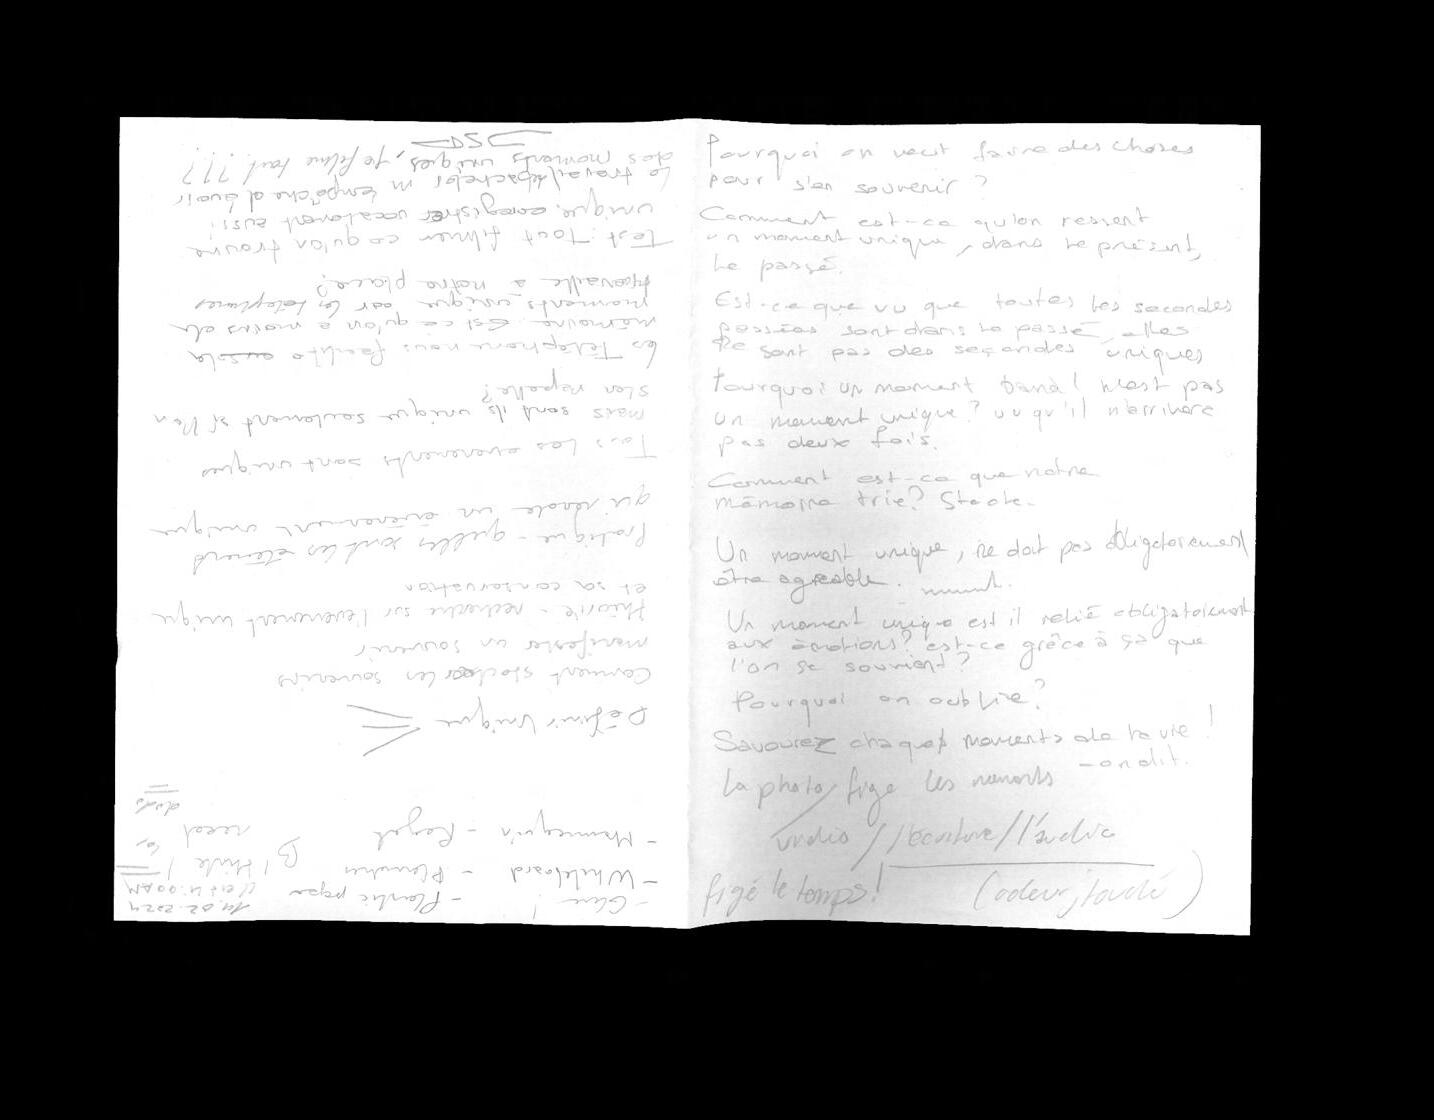 Pourquoi on veut faire des choses
pour s'en souvenir ?
Comment est-ce qu'on ressent
un moment unique, dans le présent,
le passé.
Est-ce que vu que toutes les secondes
passées sont dans le passé, elles
ne sont pas des secondes uniques
Pourquoi un moment banal n'est pas
un moment unique ? vu qu'il n'arrivera
pas deux fois.
Comment est-ce que notre
mémoire trie ? Stocke.
Un moment unique, ne doit pas obligatoirement
être agréable.
Un moment unique est il relié obligatoirement
aux émotions ? est-ce grâce à ça que
l'on se souvient ?
Pourquoi on oublie ?
Savourez chaque moments de la vie !
- on dit.
La photo fige les moments
/ l'écriture / l'audio
figé le temps !
(odeur, touché)
14.02.2024
- Glue ! - Plastic paper
- Whiteboard - Plancher
- Mannequin - Regal
need
Définir Unique
Comment stocker les souvenirs
manifester un souvenir
théorie - recherche sur l'evenement unique
et sa conservation
Pratique - quelles sont les éléments
qui rende un évènement unique
Tous les evenements sont uniques
mais sont ils unique seulement si l'on
s'en rapelle ?
les Téléphone nous facilite la
mémoire. Est ce qu'on a moins de
moments unique car les téléphones
travaille à notre place ?
Test : Tout filmer ce qu'on trouve
unique, enregistrer vocalement aussi
Le travail/bachelor m'empêche d'avoir
des moments uniques, je filme tout ???